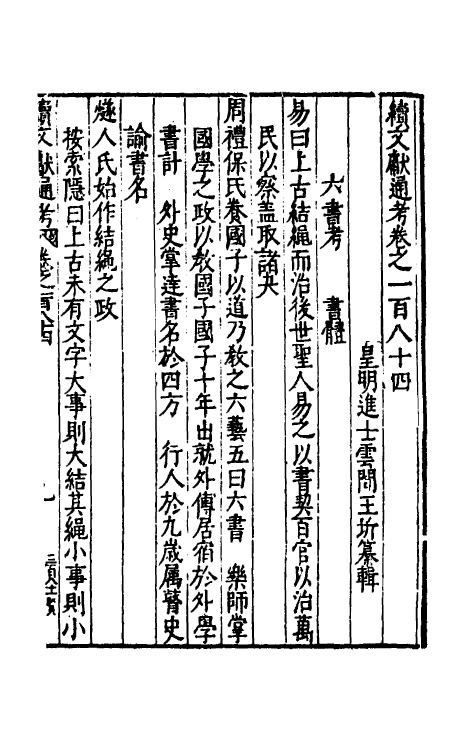 續文獻通考卷之一百八十四
皇明進士雲間王圻纂輯
六書考　書體
易曰上古結繩而治後世聖人易之以書契百官以治萬
民以察蓋取諸夬
周禮保氏養國子以道乃教之六藝五曰六書　樂師掌
國學之政以教國子國子十年出就外傅居宿於外學
書計　外史掌達書名於四方　行人於九歲属瞽史
諭書名
燧人氏始作結繩之政
按索隱曰上古未有文字大事則大結其繩小事則小
續文獻通考 卷之一百八十四